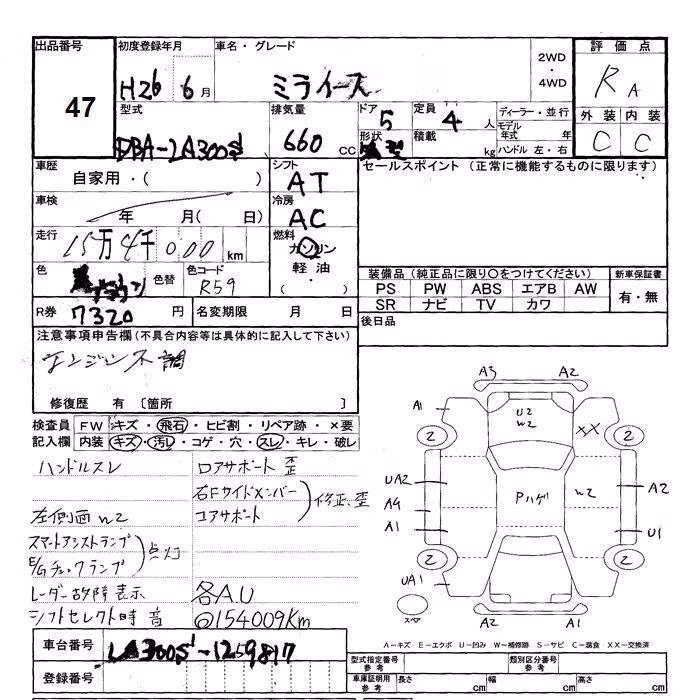 出品番号
47
初度登録年月
H26 6月
車名・グレード
ミライース
2WD
・
4WD
評価点
R A
外装 内装
C C
型式
DBA-LA300S
排気量
660 cc
ドア
5
形状
定員
4 人
積載 kg
ディーラー・並行
モデル年式 年
ハンドル 左・右
車歴
自家用・( )
シフト
AT
セールスポイント (正常に機能するものに限ります)
車検
年 月( 日)
冷房
AC
走行
15万4千000 km
燃料
ガソリン
軽油・
( )
色
ブラウン
色替
色コード
R59
装備品(純正品に限り○をつけてください)
PS PW ABS エアB AW
SR ナビ TV カワ
新車保証書
有・無
R券 7320 円
名変期限 月 日
後日品
注意事項申告欄(不具合内容等は具体的に記入して下さい)
エンジン不調
修復歴 有 〔箇所 〕
検査員記入欄
FW キズ・飛石・ヒビ割・リペア跡・×要
内装 キズ・汚レ・コゲ・穴・スレ・キレ・破レ
ハンドルスレ
コアサポート 歪
右Fサイドメンバー
コアサポート
修正、歪
左側面 W2
スマートアシストランプ
E/Gチェックランプ
点灯
レーダー故障表示
各A.U
シフトセレクト時 音
@154009Km
A3 A2
A1
U2
W2
XX
2 2
UA2
A4
A1
Pハゲ
W2
A2
U1
2 2
UA1
スペア
A2 A1
A－キズ E－エクボ U－凹み W－補修跡 S－サビ C－腐食 XX－交換済
車台番号
LA300S-1259817
登録番号
型式指定番号
参考
類別区分番号
参考
車庫証明用
参考
長さ cm
幅 cm
高さ cm